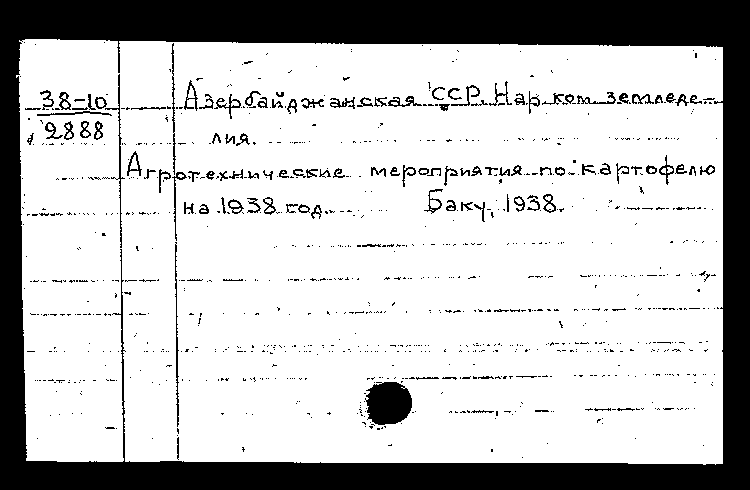 38-10 Азербайджанская ССР. Нар. ком. земледе-
2888 лия.
Агротехнические мероприятия по картофелю
на 1938 год. Баку, 1938.